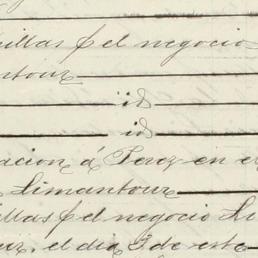 illas p el negocio
ntour
id
id
acion á Perez en el
Limantour
illas p el negocio Li
our, el dia 3 de este